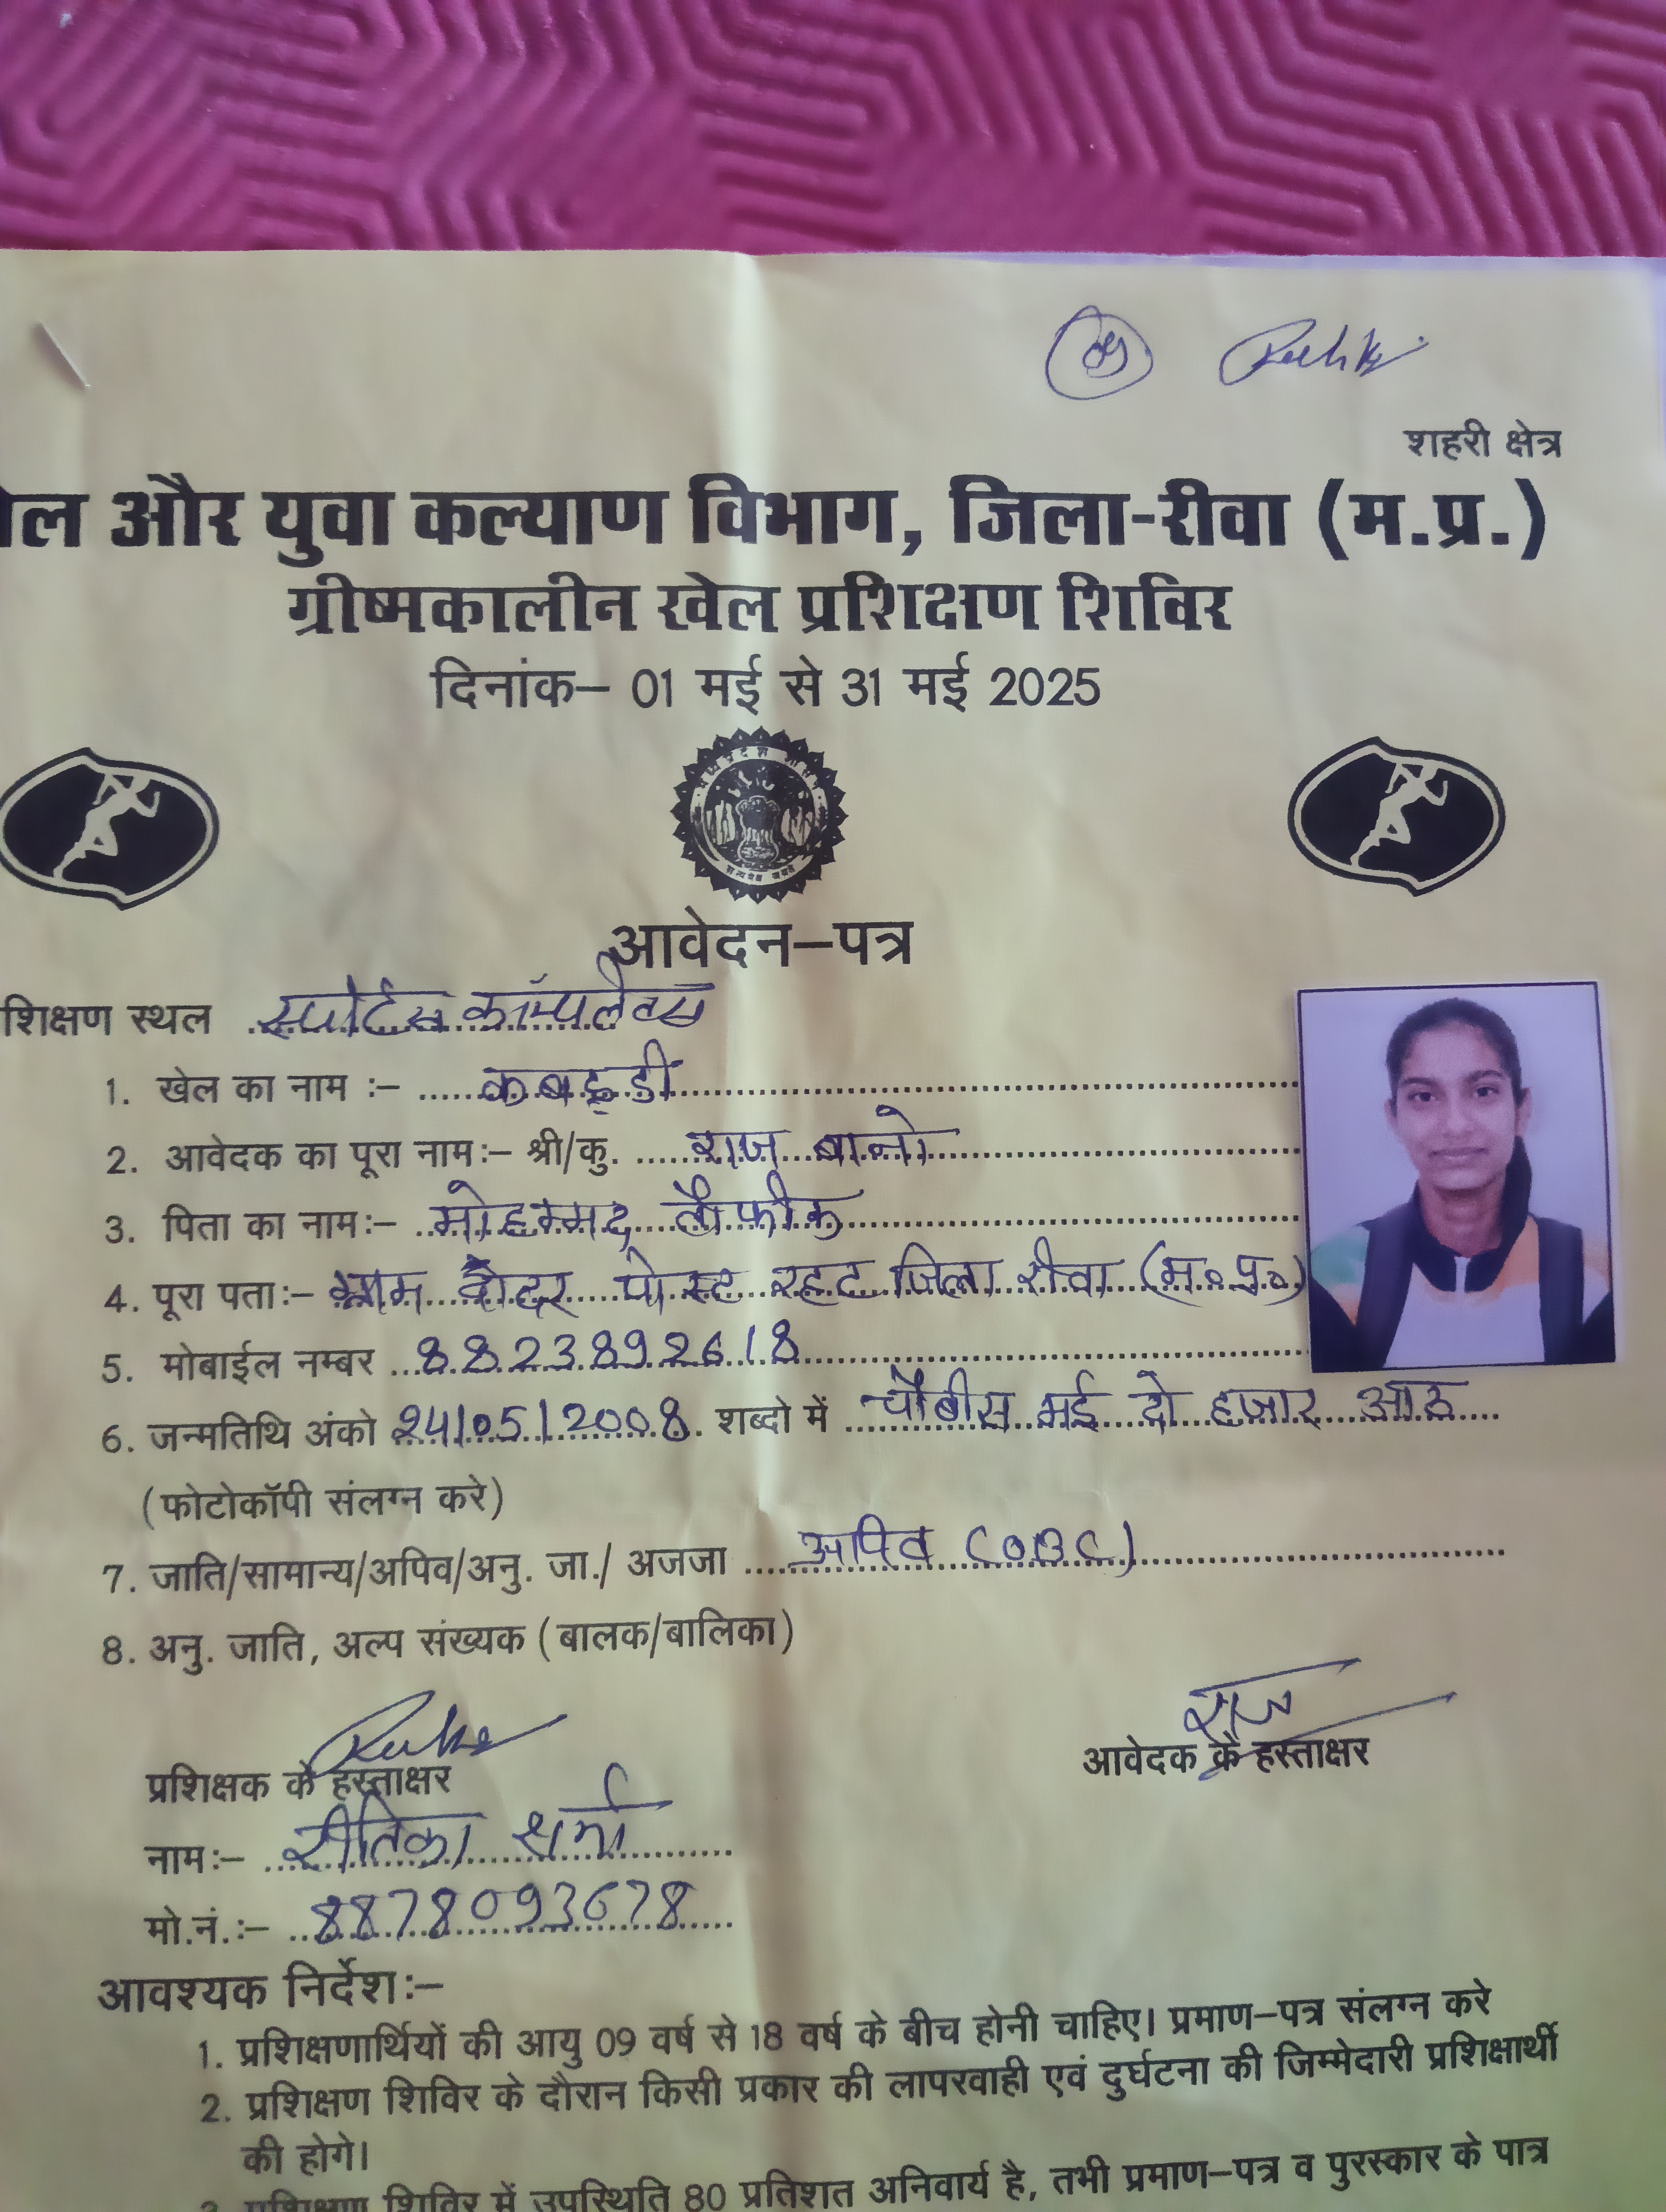 शहरी क्षेत्र
और युवा कल्याण विभाग, जिला-रीवा (म.प्र.)
ग्रीष्मकालीन खेल प्रशिक्षण शिविर
दिनांक– 01 मई से 31 मई 2025
आवेदन–पत्र
शिक्षण स्थल स्पोर्टस कॉम्पलेक्स
1. खेल का नाम :– कबड्डी
2. आवेदक का पूरा नाम:– श्री/कु. राज बानो
3. पिता का नाम:– मोहम्मद तौफीक
4. पूरा पता:– ग्राम पोस्ट रहट जिला रीवा (म०प्र०)
5. मोबाईल नम्बर 8823892618
6. जन्मतिथि अंको 24/05/2008 शब्दो में चौबीस मई दो हजार आठ
(फोटोकॉपी संलग्न करे)
7. जाति/सामान्य/अपिव/अनु. जा./ अजजा अपिव (OBC)
8. अनु. जाति, अल्प संख्यक (बालक/बालिका)
राज
प्रशिक्षक के हस्ताक्षर आवेदक के हस्ताक्षर
नाम:– रीतिका शर्मा
मो.नं.:– 8878093678
आवश्यक निर्देश:–
1. प्रशिक्षणार्थियों की आयु 09 वर्ष से 18 वर्ष के बीच होनी चाहिए। प्रमाण–पत्र संलग्न करे
2. प्रशिक्षण शिविर के दौरान किसी प्रकार की लापरवाही एवं दुर्घटना की जिम्मेदारी प्रशिक्षार्थी
की होगे।
3. प्रशिक्षण शिविर में उपस्थिति 80 प्रतिशत अनिवार्य है, तभी प्रमाण–पत्र व पुरस्कार के पात्र